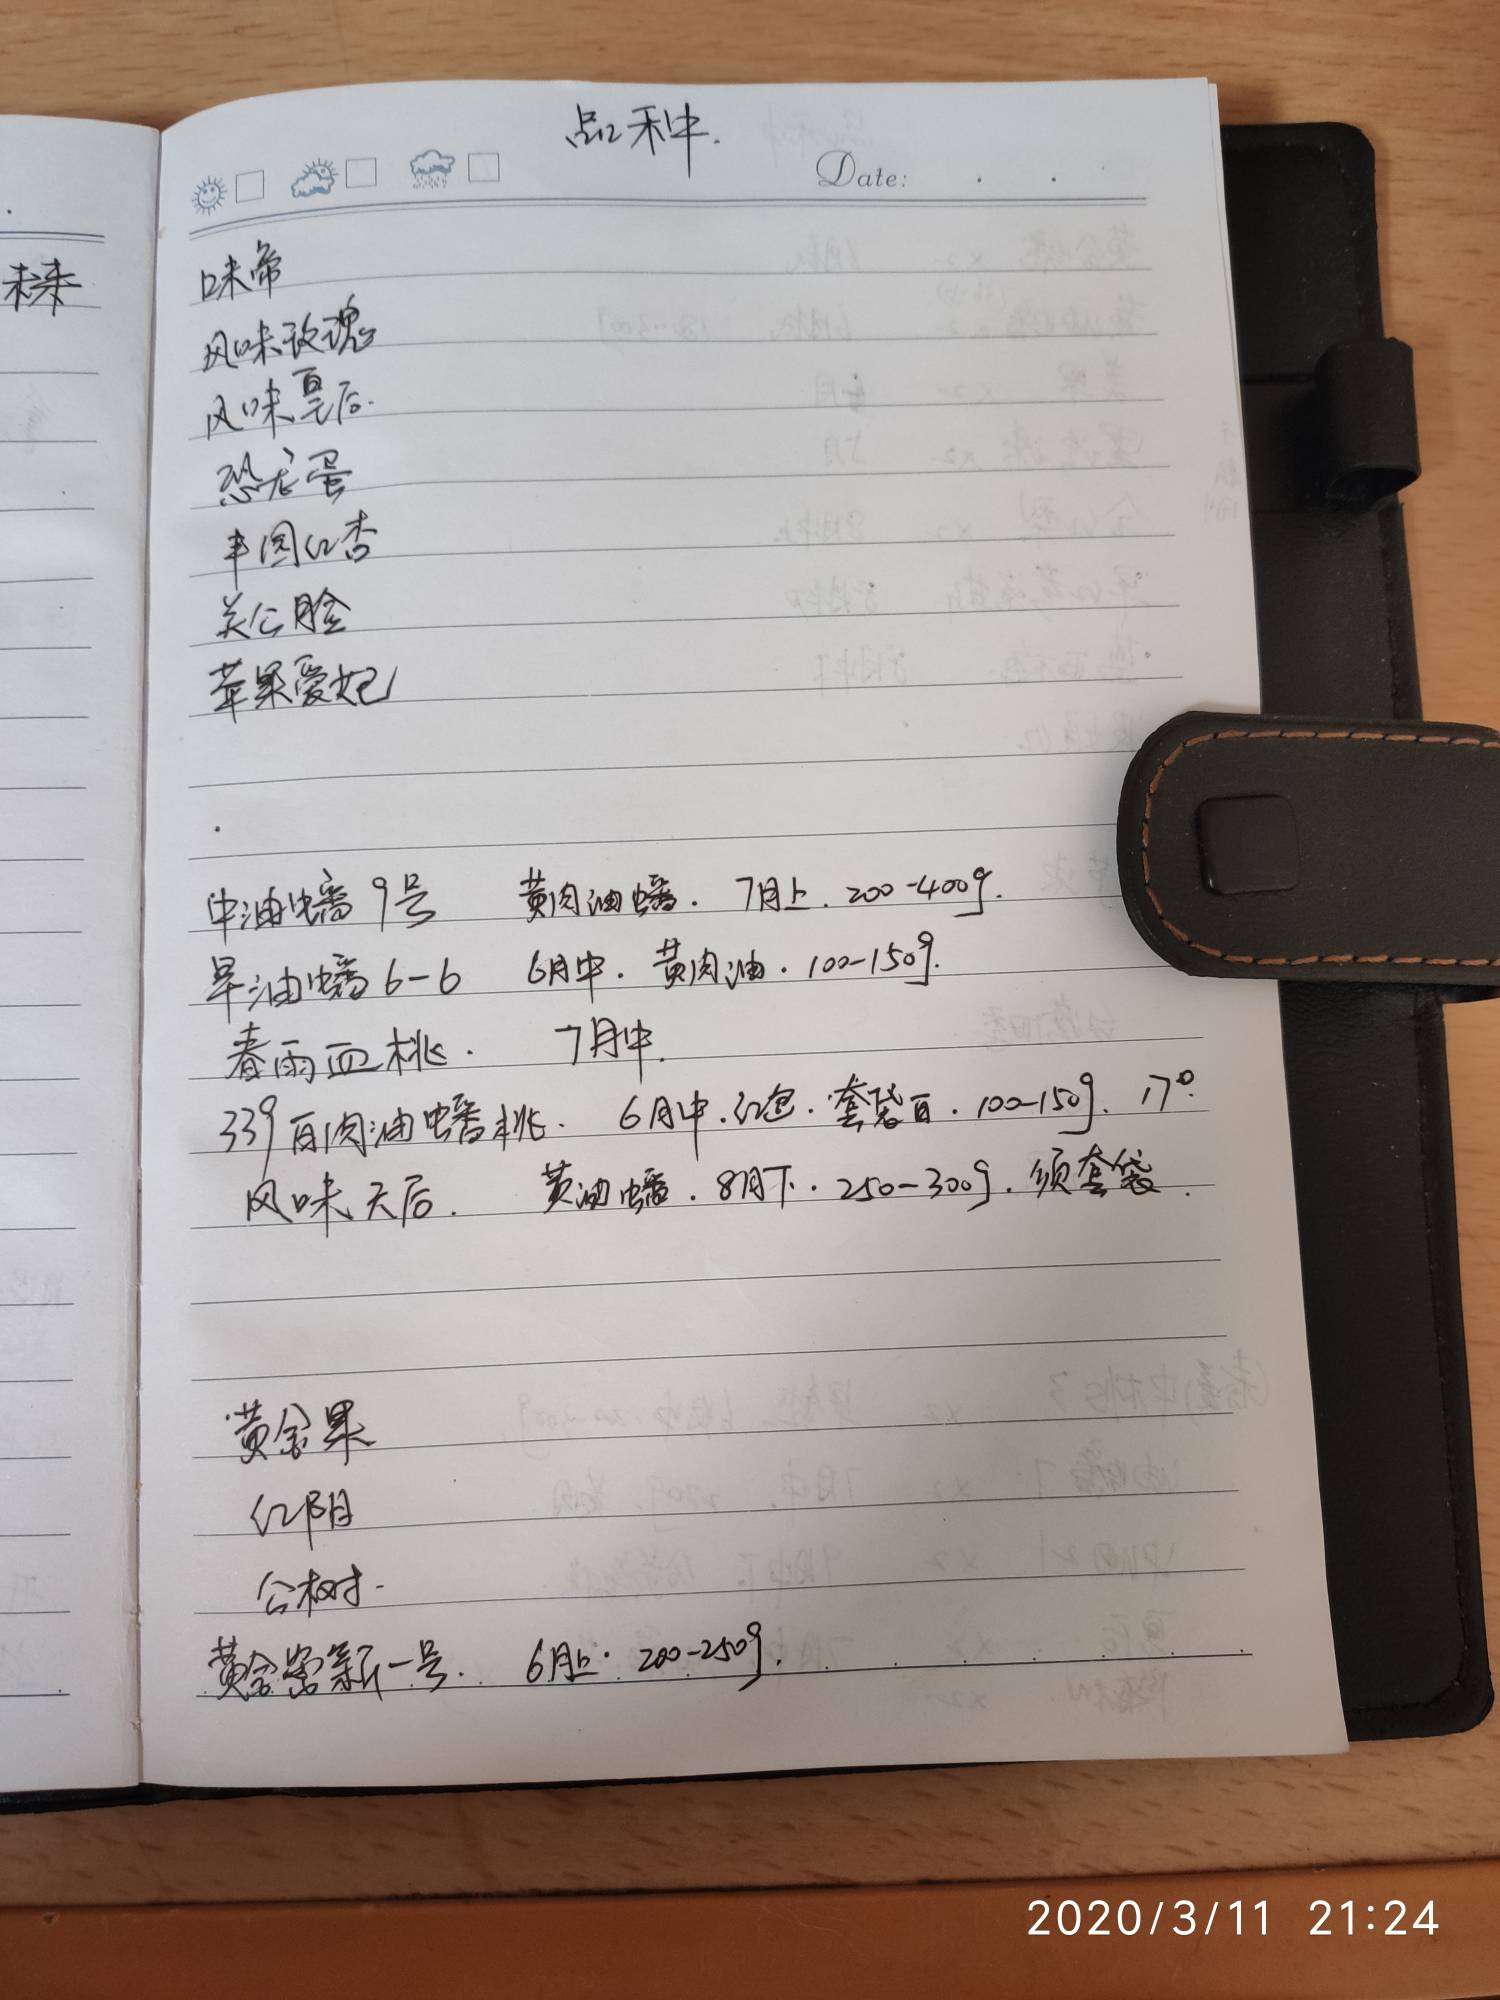 品种.
Date: . .
味帝
风味玫瑰
风味皇后.
恐龙蛋
丰园红杏
关公脸
苹果爱妃
中油蟠9号 黄肉油蟠. 7月上. 200-400g.
早油蟠6-6 6月中. 黄肉油. 100-150g.
春雨血桃. 7月中.
339百肉油蟠桃. 6月中. 红色. 套袋百. 100-150g. 17°
风味天后. 黄油蟠. 8月下. 250-300g. 须套袋.
黄金果
红阳
公树.
黄金蜜新一号. 6月上. 200-250g.
2020/3/11 21:24